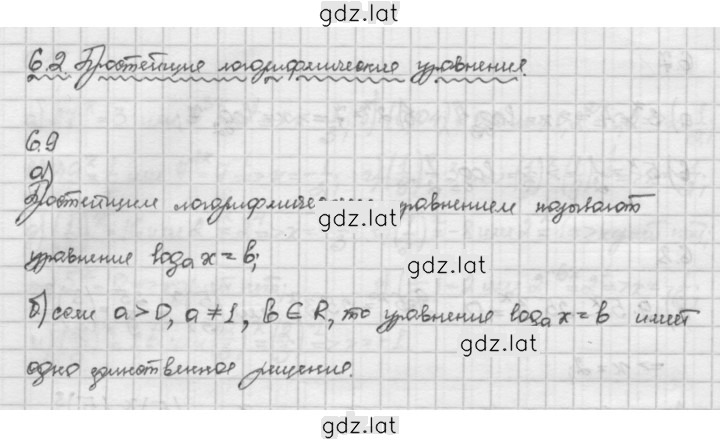 gdz.lat
6.2. Простейшие логарифмические уравнения.
6.9
а)
Простейшим логарифмическим уравнением называют
gdz.lat
уравнение logₐx = b;
gdz.lat
б) если a > 0, a ≠ 1, b ∈ R, то уравнение logₐx = b имеет
gdz.lat
одно единственное решение.
gdz.lat